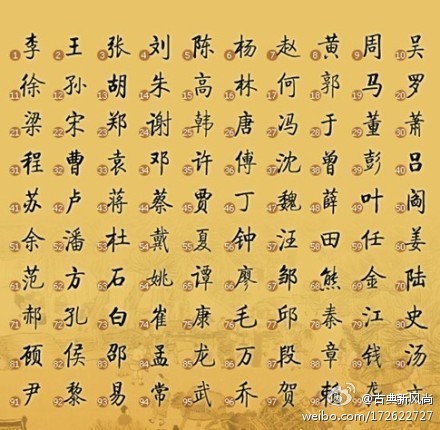 1李 2王 3张 4刘 5陈 6杨 7赵 8黄 9周 10吴
11徐 12孙 13胡 14朱 15高 16林 17何 18郭 19马 20罗
21梁 22宋 23郑 24谢 25韩 26唐 27冯 28于 29董 30萧
31程 32曹 33袁 34邓 35许 36傅 37沈 38曾 39彭 40吕
41苏 42卢 43蒋 44蔡 45贾 46丁 47魏 48薛 49叶 50阎
51余 52潘 53杜 54戴 55夏 56钟 57汪 58田 59任 60姜
61范 62方 63石 64姚 65谭 66廖 67邹 68熊 69金 70陆
71郝 72孔 73白 74崔 75康 76毛 77邱 78秦 79江 80史
81顾 82侯 83邵 84孟 85龙 86万 87段 88章 89钱 90汤
91尹 92黎 93易 94常 95武 96乔 97贺 98赖 99龚
@古典新风尚
weibo.com/172622727